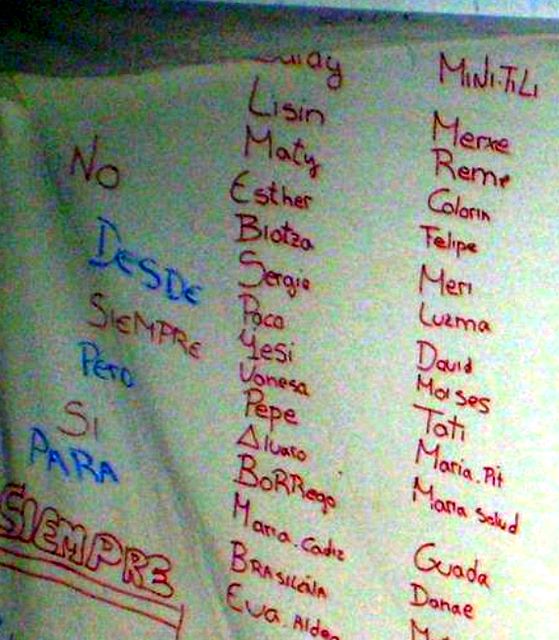 No
DESDE
SIEMPRE
Pero
SI
PARA
SIEMPRE
Lisin
Maty
Esther
Biotza
Sergio
Paco
Yesi
Vanesa
Pepe
Alvaro
BORRego
Maria.Cadiz
BRASileña
Eva.Alden
MiNi-TiLi
Merxe
Reme
Colorin
Felipe
Meri
Luzma
David
Moises
Tati
Maria.Pit
Maria Salud
Guada
Danae